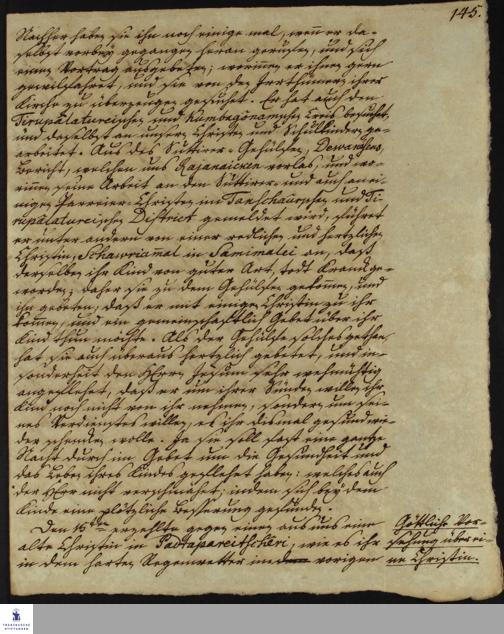 145.
Nachher haben sie ihn noch einige mal, wenn er da-
selbst vorbey gegangen heran geruffen, und sich
einen Vortrag ausgebeten; worinnen er ihnen gern
gewillfahret, und sie von den Irrthümern ihrer
Kirche zu überzeugen gesuchet. Er hat auch den
Tirupalatureischen und Kumbagonamschen Creis besuchet,
und daselbst an unsern Christen und Schulkindern ge-
arbeitet. Aus des Süttirer-Gehülfen, Dewanesens,
Bericht, welchen uns Rajanaicken vorlas, und wo-
rinn seine Arbeit an den Süttirer- und auch an ei-
nigen Parreier-Christen im Tanschaurschen und Ti-
rupalatureischen District gemeldet wird, führet
er unter andern von einer redlichen und hertzlichen
Christin, Schawriamal in Samimalei an, daß
derselben ihr Kind von guter Art, todt kranck ge-
worden; daher sie zu dem Gehülfen gekommen, und
ihn gebeten, daß er mit einigen Christen zu ihr
kommen, und ein gemeinschaftlich Gebet über ihr
Kind thun möchte. Als der Gehülfe solches gethan,
hat sie auch überaus hertzlich gebetet, und in-
sonderheit den Herrn Jesum sehr wehmüthig
angeflehet, daß er um ihrer Sünden willen ihr
Kind noch nicht von ihr nehmen, sondern um sei-
nes Verdienstes willen, es ihr dismal gesund wie-
der schencken wolle. Ja sie soll fast eine gantze
Nacht durch im Gebet um die Gesundheit und
das Leben ihres Kindes geflehet haben: welches auch
der Herr nicht verschmähet; indem sich bey dem
Kinde eine plötzliche Besserung gefunden.
Den 15ten erzehlte gegen einen aus uns eine
alte Christin in Padtapareitscheri, wie es ihr
in dem harten Regenwetter im vorigen
Göttliche Vor-
sehung über ei-
ne Christin.
FRANCKESCHE
STIFTUNGEN